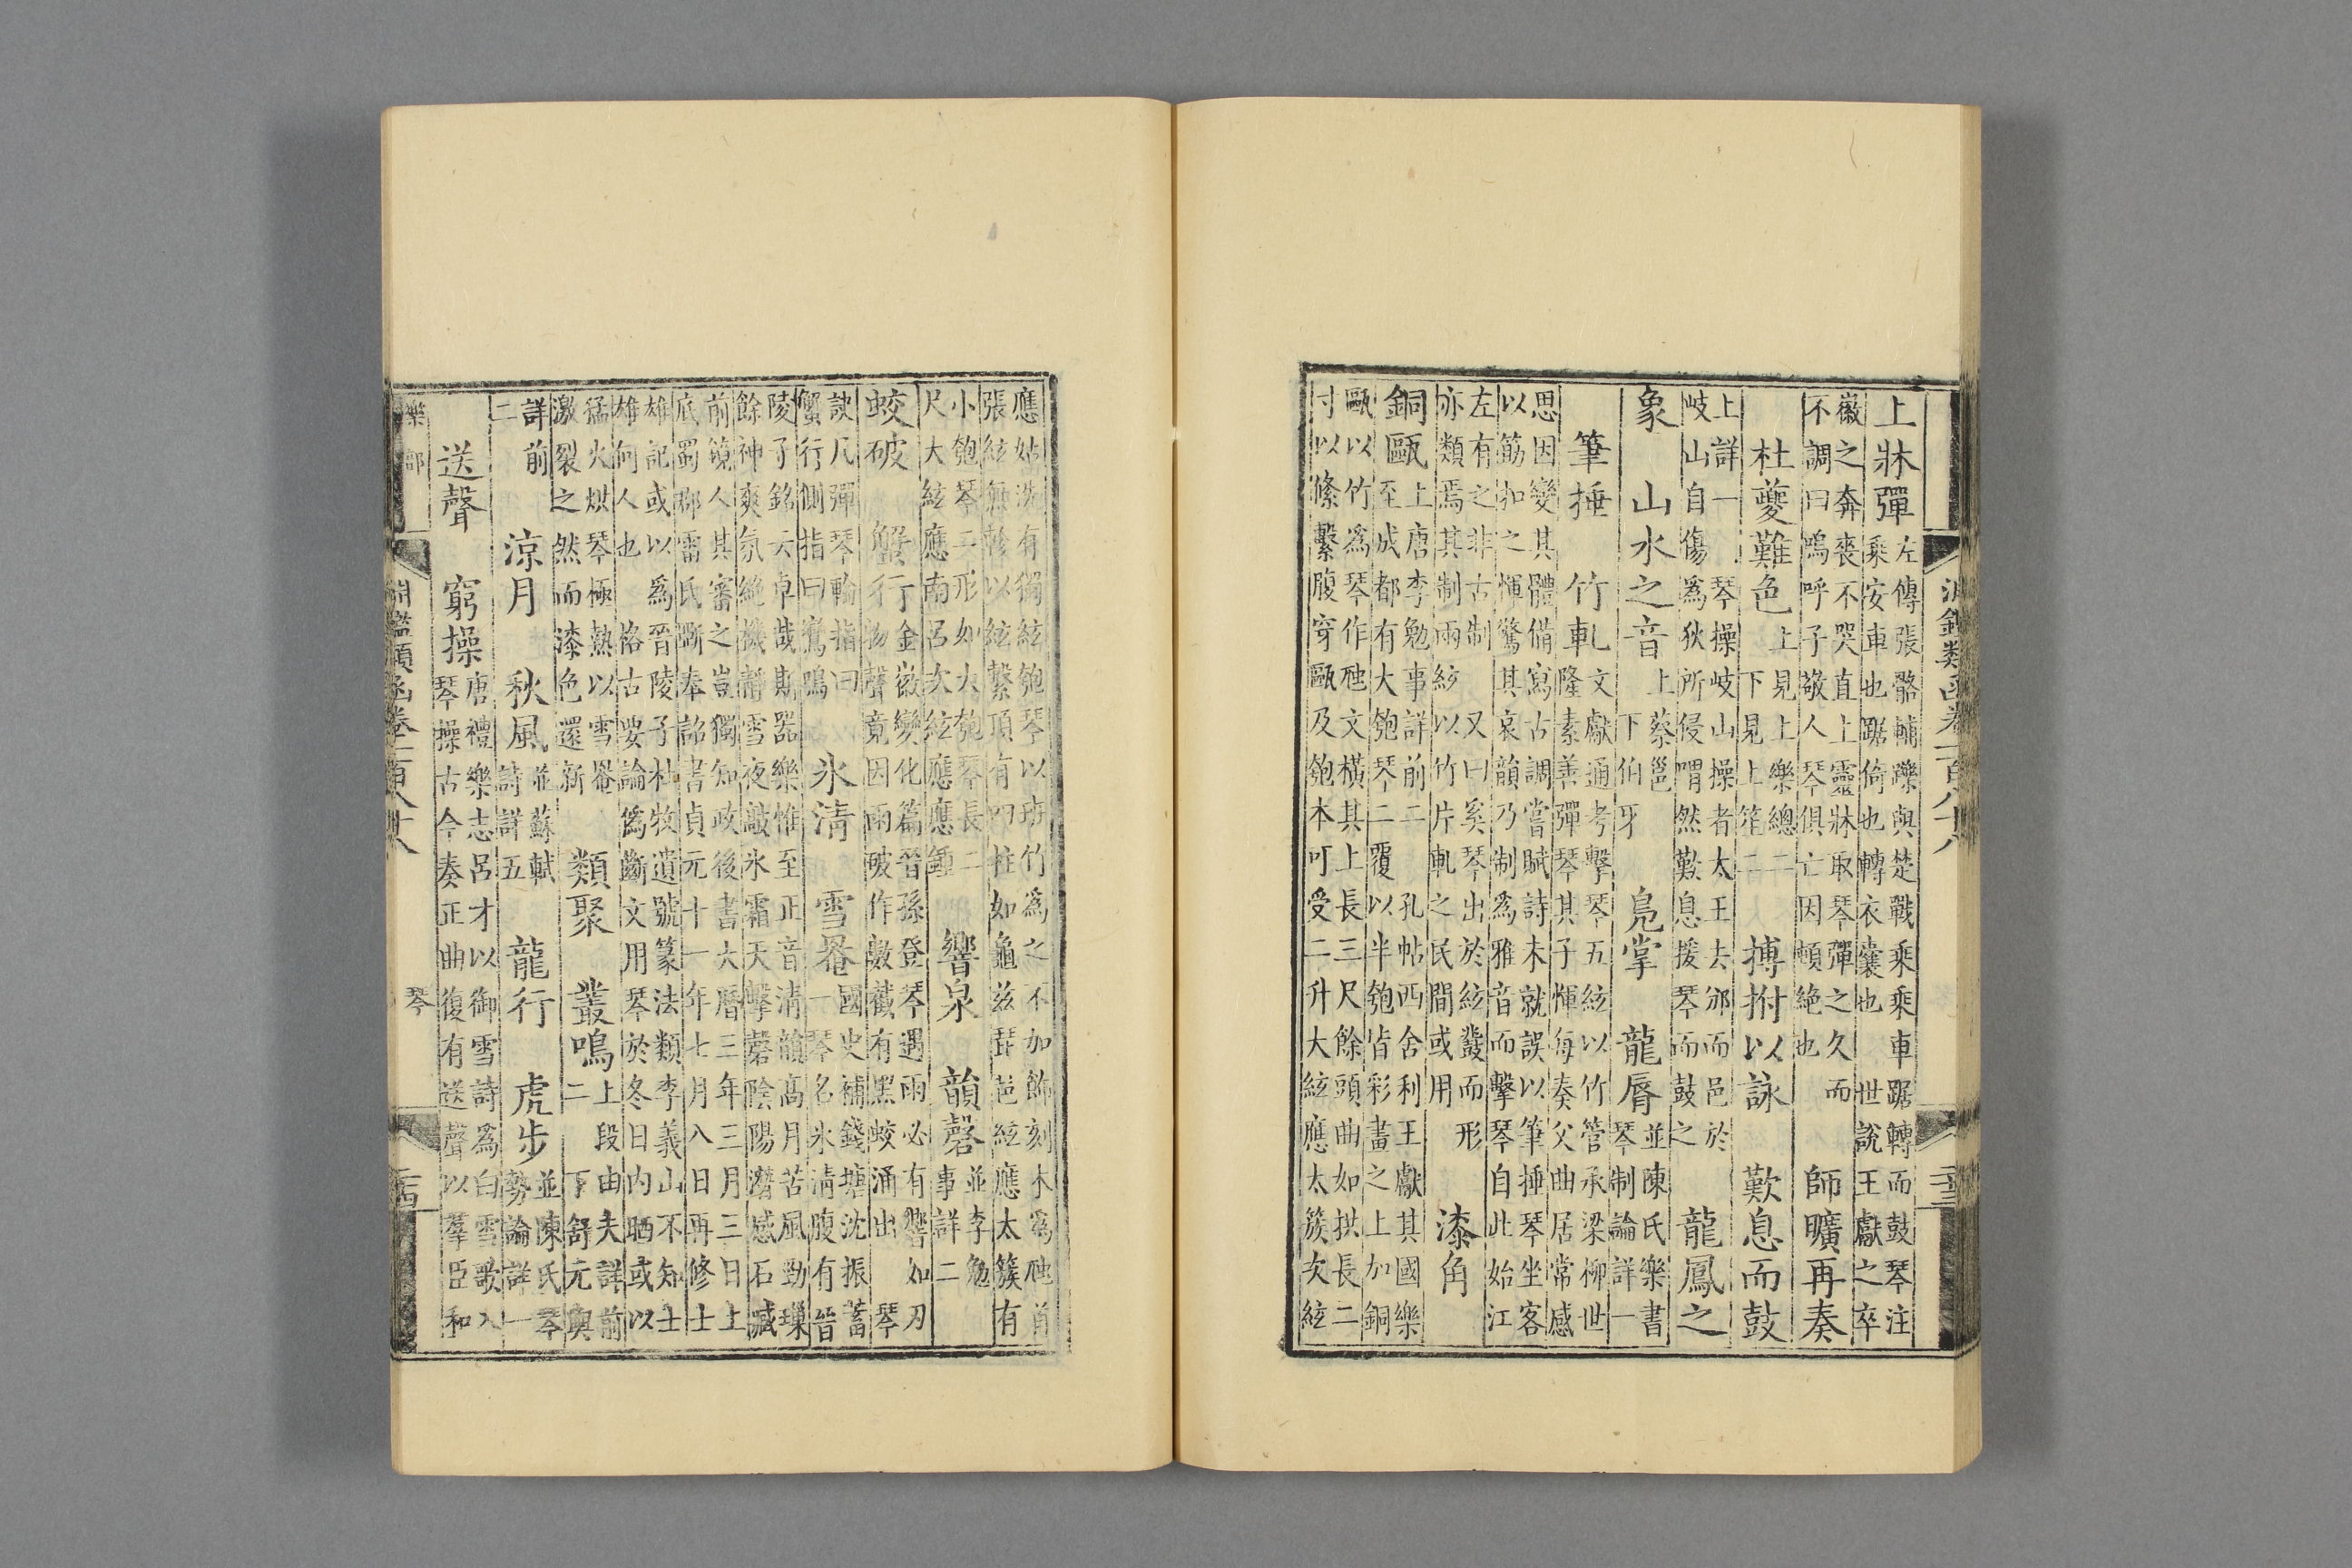 淵鑑類函卷一百八十八 二十三
上牀彈
左傳張骼輔躒與楚戰乘乘車踞轉而鼓琴注
乘安車也踞倚也轉衣囊也 世說王獻之卒
徽之奔喪不哭直上靈牀取琴彈之久而
不調曰嗚呼子敬人琴俱亡因頓絶也
師曠再奏
杜夔難色
上見上樂總二
下見上笙二
搏拊以詠 歎息而鼓
上詳一 琴操岐山操者太王去邠而邑於
岐山自傷爲狄所侵喟然歎息援琴而鼓之
龍鳳之
象 山水之音
上蔡邕
下伯牙
鳧掌 龍脣
並陳氏樂書
琴制論詳一
筆捶 竹軋
文獻通考擊琴五絃以竹管承梁柳世
隆素善彈琴其子惲每奏父曲居常感
思因變其體備寫古調嘗賦詩未就誤以筆捶琴坐客
以筯扣之惲驚其哀韻乃制爲雅音而擊琴自此始江
左有之非古制 又曰奚琴出於絃鼗而形
亦類焉其制兩絃以竹片軋之民間或用
漆角
銅甌
上唐李勉事詳前二 孔帖西舍利王獻其國樂
至成都有大匏琴二覆以半匏皆彩畫之上加銅
甌以竹爲琴作虺文橫其上長三尺餘頭曲如拱長二
寸以絛繫腹穿甌及匏本可受二升大絃應太簇次絃
應姑洗有獨絃匏琴以班竹爲之不加飾刻木爲虺首
張絃無軫以絃繫頂有四柱如龜茲琵琶絃應太簇有
小匏琴二形如大匏琴長二
尺大絃應南呂次絃應應鍾
響泉 韻磬
並李勉
事詳二
蛟破 蟹行
金徽變化篇晉孫登琴遇雨必有響如刃
物聲竟因雨破作數截有黑蛟涌出 琴
訣凡彈琴輪指曰
蟹行側指曰鸞鳴
氷清 雪罨
國史補錢塘沈振蓄
一琴名氷清腹有晉
陵子銘云卓哉斯器樂惟至正音清韻高月苦風勁璅
餘神爽氛絶機靜雪夜敲氷霜天擊磬陰陽潛感石臧
前鏡人其審之豈獨知政後書大曆三年三月三日上
底蜀郡雷氏斲奉詔書貞元十一年七月八日再修士
雄記或以爲晉陵子杜牧遺號篆法類李義山不知士
雄何人也 格古要論僞斷文用琴於冬日内晒或以
猛火烘琴極熱以雪罨
激裂之然而漆色還新
類聚 叢鳴
上段由夫詳前
二 下舒元輿
詳前
二
涼月 秋風
並蘇軾
詩詳五
龍行 虎步
並陳氏琴
勢論詳一
送聲 窮操
唐禮樂志呂才以御雪詩爲白雪歌入
琴操古今奏正曲復有送聲以羣臣和
樂部 琴
淵鑑類函卷一百八十八 二十四